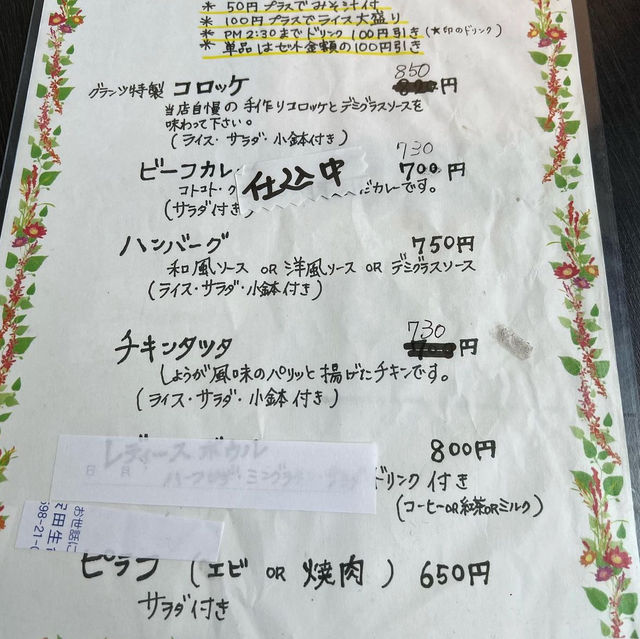 * 50円プラスでみそ汁付
* 100円プラスでライス大盛り
* PM 2:30まで ドリンク 100円引き (★印のドリンク)
* 単品はセット金額の100円引き
850
グランツ特製 コロッケ 円
当店自慢の手作りコロッケとデミグラスソースを
味わって下さい。
(ライス・サラダ・小鉢付き)
730
ビーフカレ 700円
仕込中
コトコト・ だカレーです。
(サラダ付き
ハンバーグ 750円
和風ソース OR 洋風ソース OR デミグラスソース
(ライス・サラダ・小鉢付き)
730
チキンタツタ 円
しょうが風味のパリッと揚げたチキンです。
(ライス・サラダ・小鉢付き)
レディースボウル 800円
ドリンク付き
(コーヒーOR紅茶ORミルク)
お世話に
598-21-
ピラフ (エビ OR 焼肉) 650円
サラダ付き